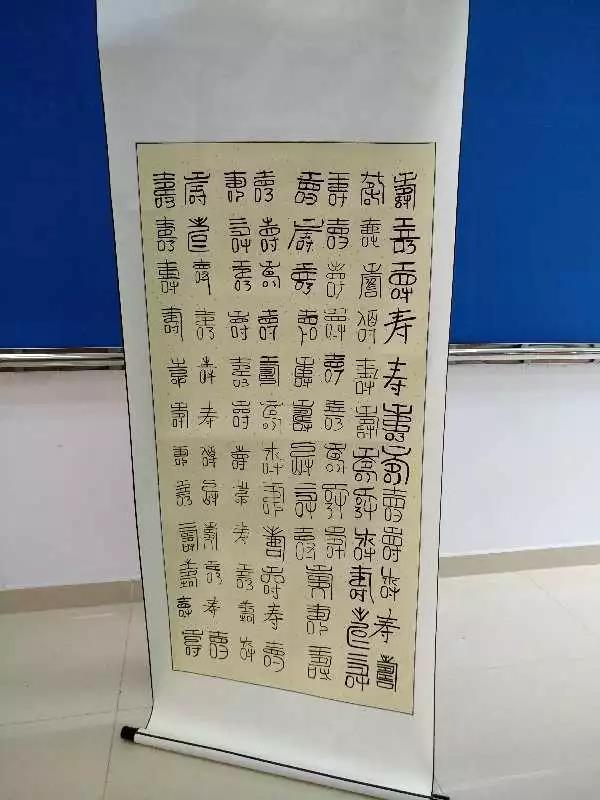 壽壽壽寿寿壽壽壽壽壽寿壽
壽壽壽壽壽壽壽壽壽壽壽壽
壽壽壽壽壽壽壽壽壽
壽壽壽壽壽壽壽壽壽壽壽壽
壽壽壽壽壽壽壽壽壽壽寿壽
壽壽壽壽壽壽壽壽寿壽壽壽
壽壽壽壽壽寿壽壽壽壽寿壽
壽壽壽壽壽壽壽壽壽壽壽壽